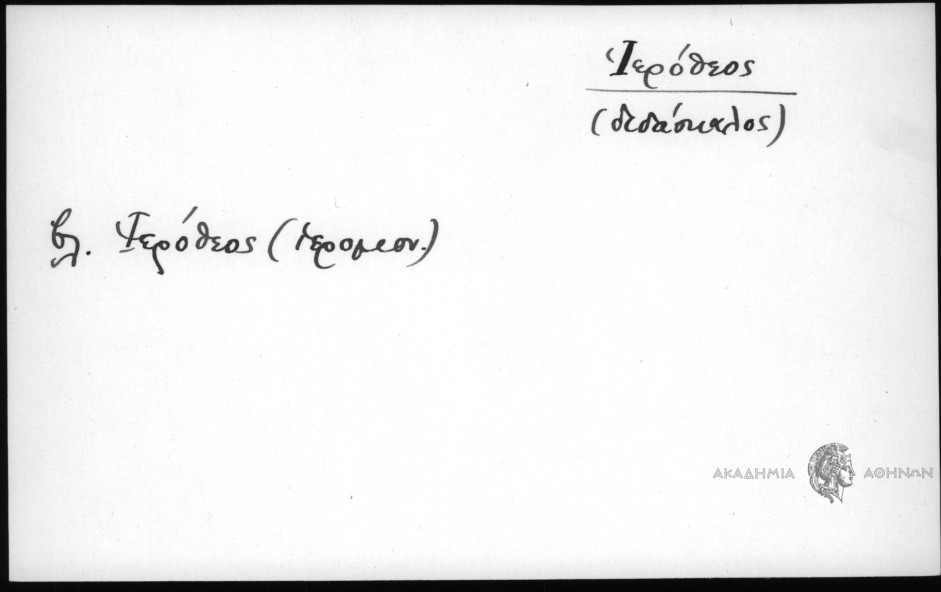 Ἱερόθεος
(διδάσκαλος)
βλ. Ἱερόθεος (ἱερομον.)
ΑΚΑΔΗΜΙΑ ΑΘΗΝΩΝ